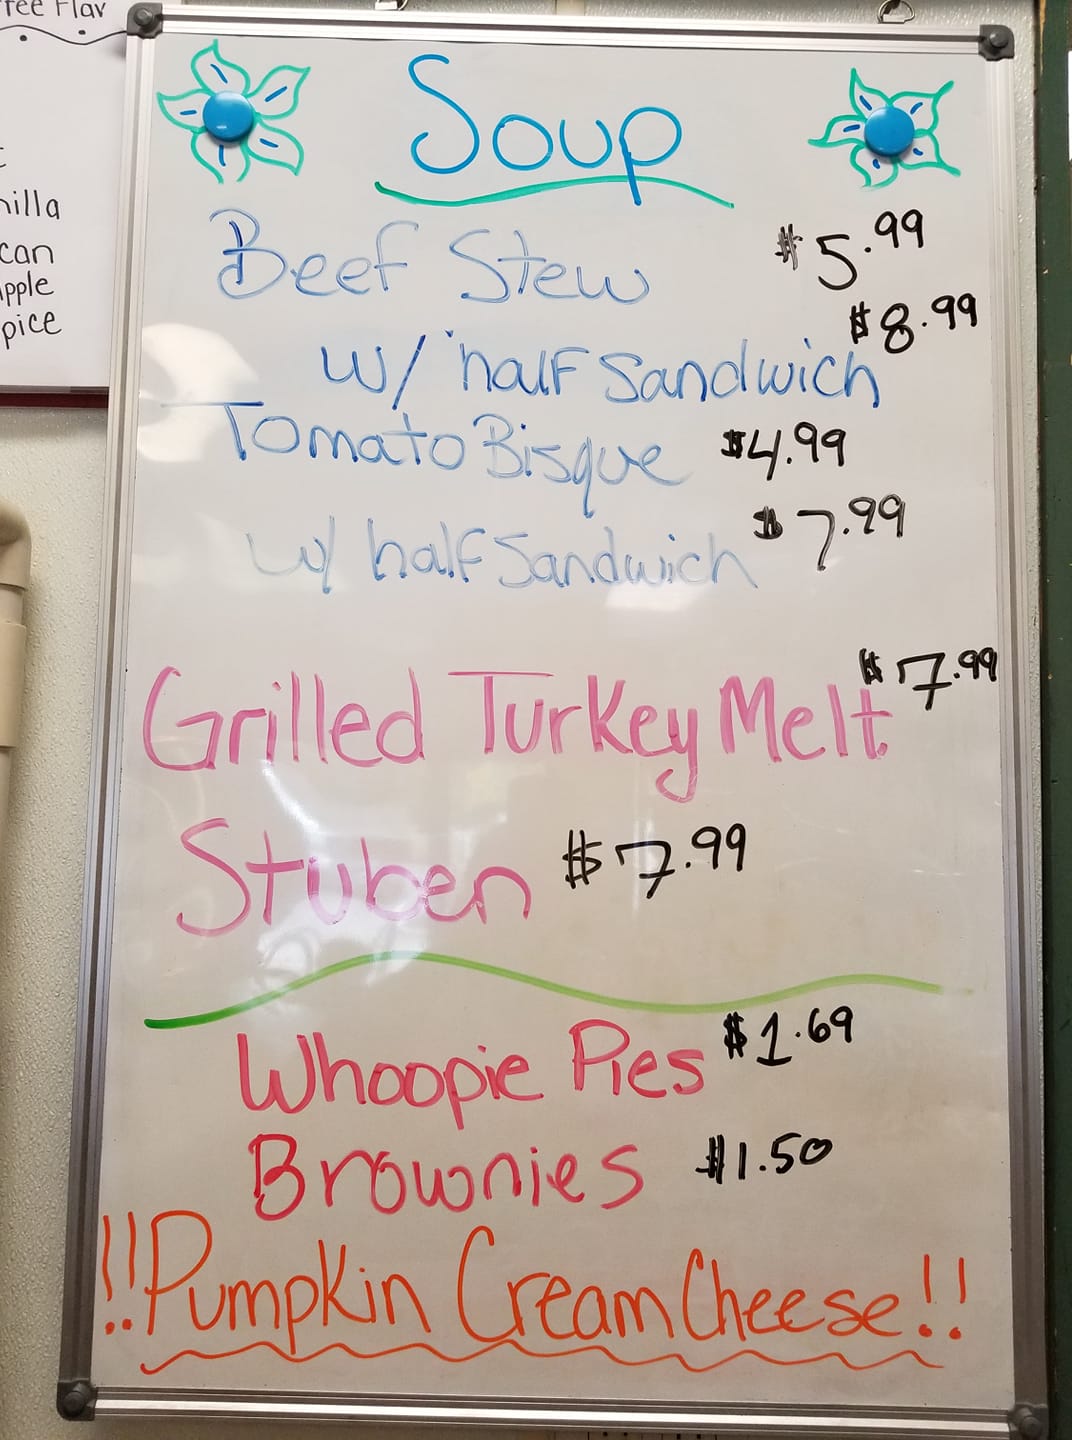 Soup
Beef Stew $5.99
$8.99
w/ half Sandwich
Tomato Bisque $4.99
w/ half Sandwich $7.99
Grilled Turkey Melt $7.99
Stuben $7.99
Whoopie Pies $1.69
Brownies $1.50
!!Pumpkin Cream Cheese!!